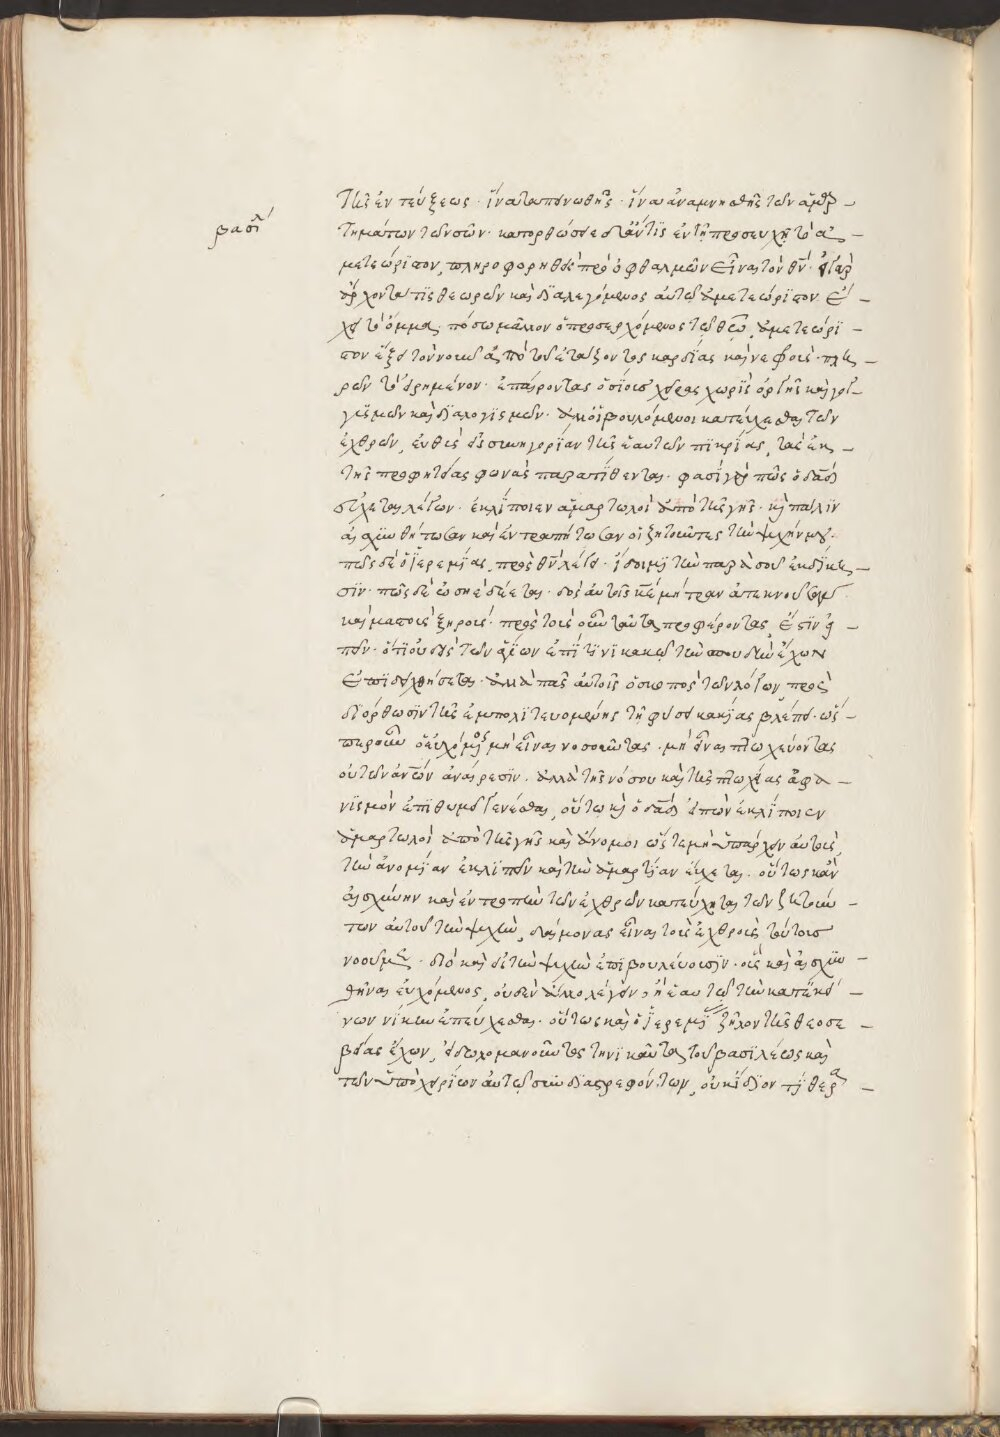 βασι^λ
τῆς ἐντεύξεως · ἵνα ταπεινωθῇς · ἵνα ἀναμνησθῇς τῶν ἁμαρ –
τημάτων τῶν σῶν · κατορθώσειε δ' ἄν τις ἐν τῇ προσευχῇ τὸ ἀ –
μετεώριστον, πληροφορηθεὶς πρὸ ὀφθαλμῶν εἶναι τὸν θν̄ · εἰ γὰρ
ἄρχοντά τις θεωρῶν καὶ διαλεγόμενος αὐτῷ ἀμετεώριστον ἔ –
χει τὸ ὄμμα · πόσω μᾶλλον ὁ προσερχόμενος τῷ θεῷ, ἀμετεώρι
στον ἕξει τὸν νοῦν ἀπὸ τοῦ ἐτάζοντος καρδίας καὶ νεφροὺς · πλη –
ρῶν τὸ εἰρημένον · ἐπαίροντας ὁσίους χεῖρας χωρὶς ὀργῆς καὶ
καὶ διαλογισμῶν · ἀλλ' οἱ βουλόμενοι κατεύχεσθαι τῶν
ἐχθρῶν, εὐθὺς εἰς συνηγορίαν τῆς ἑαυτῶν πικρίας, τὰς ἐκ –
τῆς προφητείας φωνὰς παρατίθενται · φασὶ γὰρ πῶς ὁ δαδ̄
εὔχεται λέγων · ἐκλίποιεν ἁμαρτωλοὶ ἀπὸ τῆς γῆς · κὴ πάλιν
αἰσχυνθήτωσαν καὶ ἐντραπήτωσαν οἱ ζητοῦντες τὴν ψυχήν μου ·
πῶς δὲ ὁ ἱερεμίας, πρὸς θν̄ λέγει · ἴδοιμι τὴν παρὰ σοῦ ἐκδίκη –
σιν · πῶς δὲ ὠσηὲ δέεται · δὸς αὐτοῖς κε̄ μήτραν ἀτεκνοῦσαν
καὶ μαστοὺς ξηρούς · πρὸς τοὺς οὖν ταῦτα προφέροντας, ἔστιν εἰ –
πεῖν · ὅτι οὐδεὶς τῶν ἁγίων ἐπί τινι κακῷ τὴν σπουδὴν ἔχων
ἐπιδειχθήσεται · ἀλλὰ πᾶς αὐτοῖς ὁ σκοπὸς τῶν λόγων πρὸς
διόρθωσιν τῆς ἐμπολιτευομένης τῇ φύσει κακίας βλέπει · ὥς –
περ οὖν ὁ εὐχόμ^ος μὴ εἶναι νοσοῦντας · μὴ εἶναι πτωχεύοντας
οὐ τῶν ἀνω̄ν ἀναίρεσιν · ἀλλὰ τῆς νόσου καὶ τῆς πτωχείας ἀφα –
νισμὸν ἐπιθυμεῖ γενέσθαι, οὕτω κὴ ὁ δαδ̄ εἰπὼν ἐκλίποιεν
ἁμαρτωλοὶ ἀπὸ τῆς γῆς καὶ ἄνομοι ὥστε μὴ ὑπάρχειν αὐτοὺς,
τὴν ἀνομίαν ἐκλιπεῖν καὶ τὴν ἁμαρτίαν εὔχεται · οὕτως κἂν
αἰσχύνην καὶ ἐντροπὴν τῶν ἐχθρῶν κατεύχηται τῶν ζητούν –
των αὐτοῦ τὴν ψυχὴν, δαίμονας εἶναι τοὺς ἐχθροὺς τούτους
νοοῦμεν · διὸ καὶ εἰς τὴν ψυχὴν ἐπιβουλεύουσιν · οὓς καὶ αἰσχυν –
θῆναι εὐχόμενος, οὐδὲν ἄλλο λέγει, ἢ ἑαυτῷ τὴν κατ' ἐκεί –
νων νίκην ἐπεύχεσθαι · οὕτως καὶ ὁ ἱερεμίας ζῆλον τῆς θεοσε –
βείας ἔχων, εἰδωλομανοῦντος τηνικαῦτα τοῦ βασιλέως καὶ
τῶν ὑποχειρίων αὐτῷ συνδιαστρεφόντων, οὐκ ἴδιόν τι θερα –